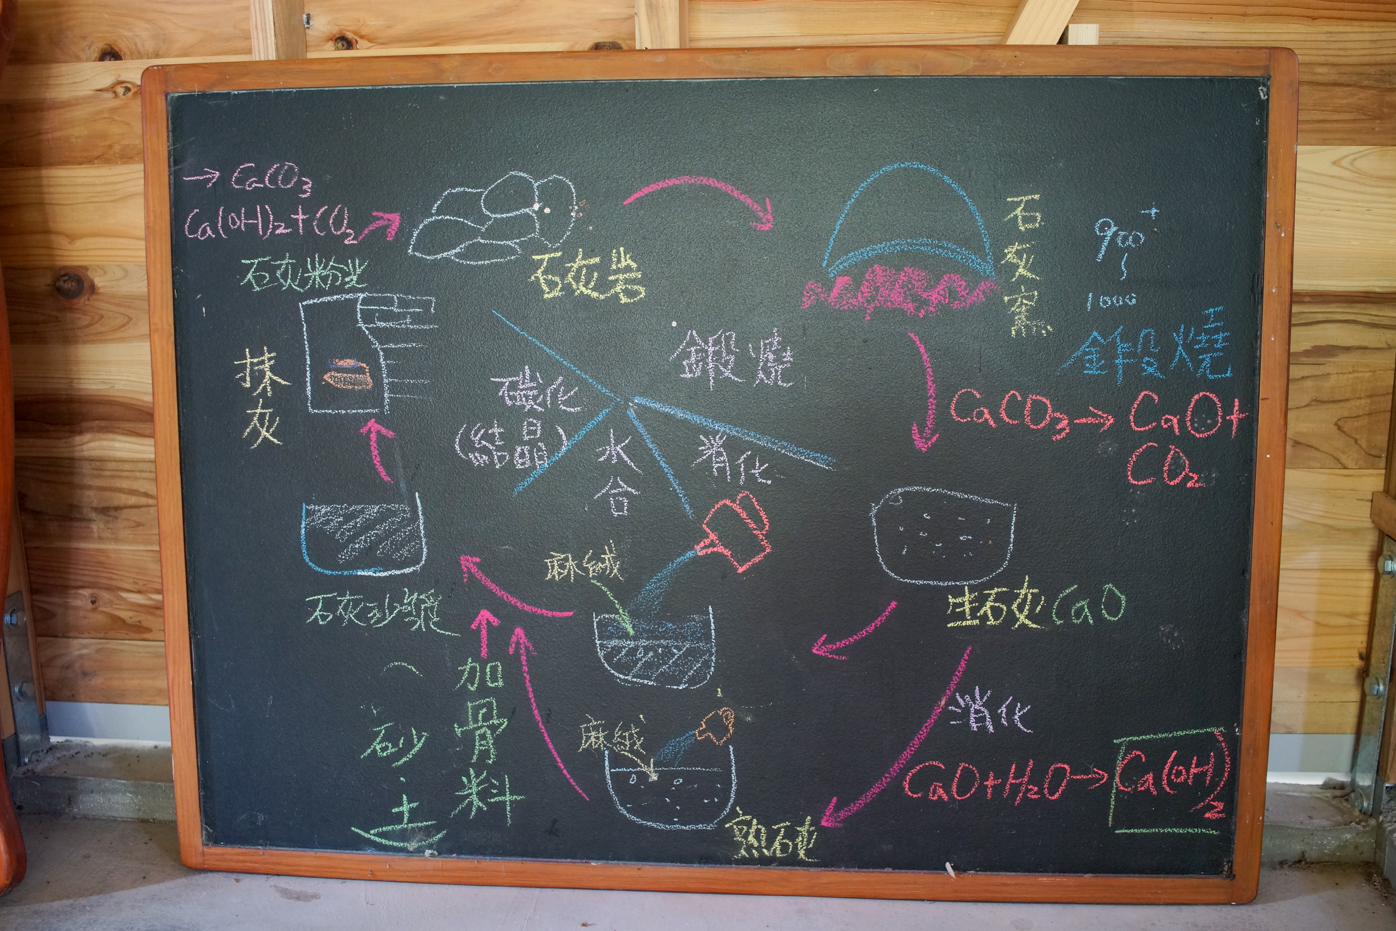 → CaCO₃
Ca(OH)₂+CO₂
石灰粉光
石灰岩
石灰窯
900⁺
~
1000
鍛燒
抹灰
碳化
(結晶)
水合
消化
鍛燒
CaCO₃→ CaO+
CO₂
石灰砂漿
麻絨
生石灰 CaO
加骨料
(砂.土)
麻絨
熟石灰
消化
CaO+H₂O→Ca(OH)₂